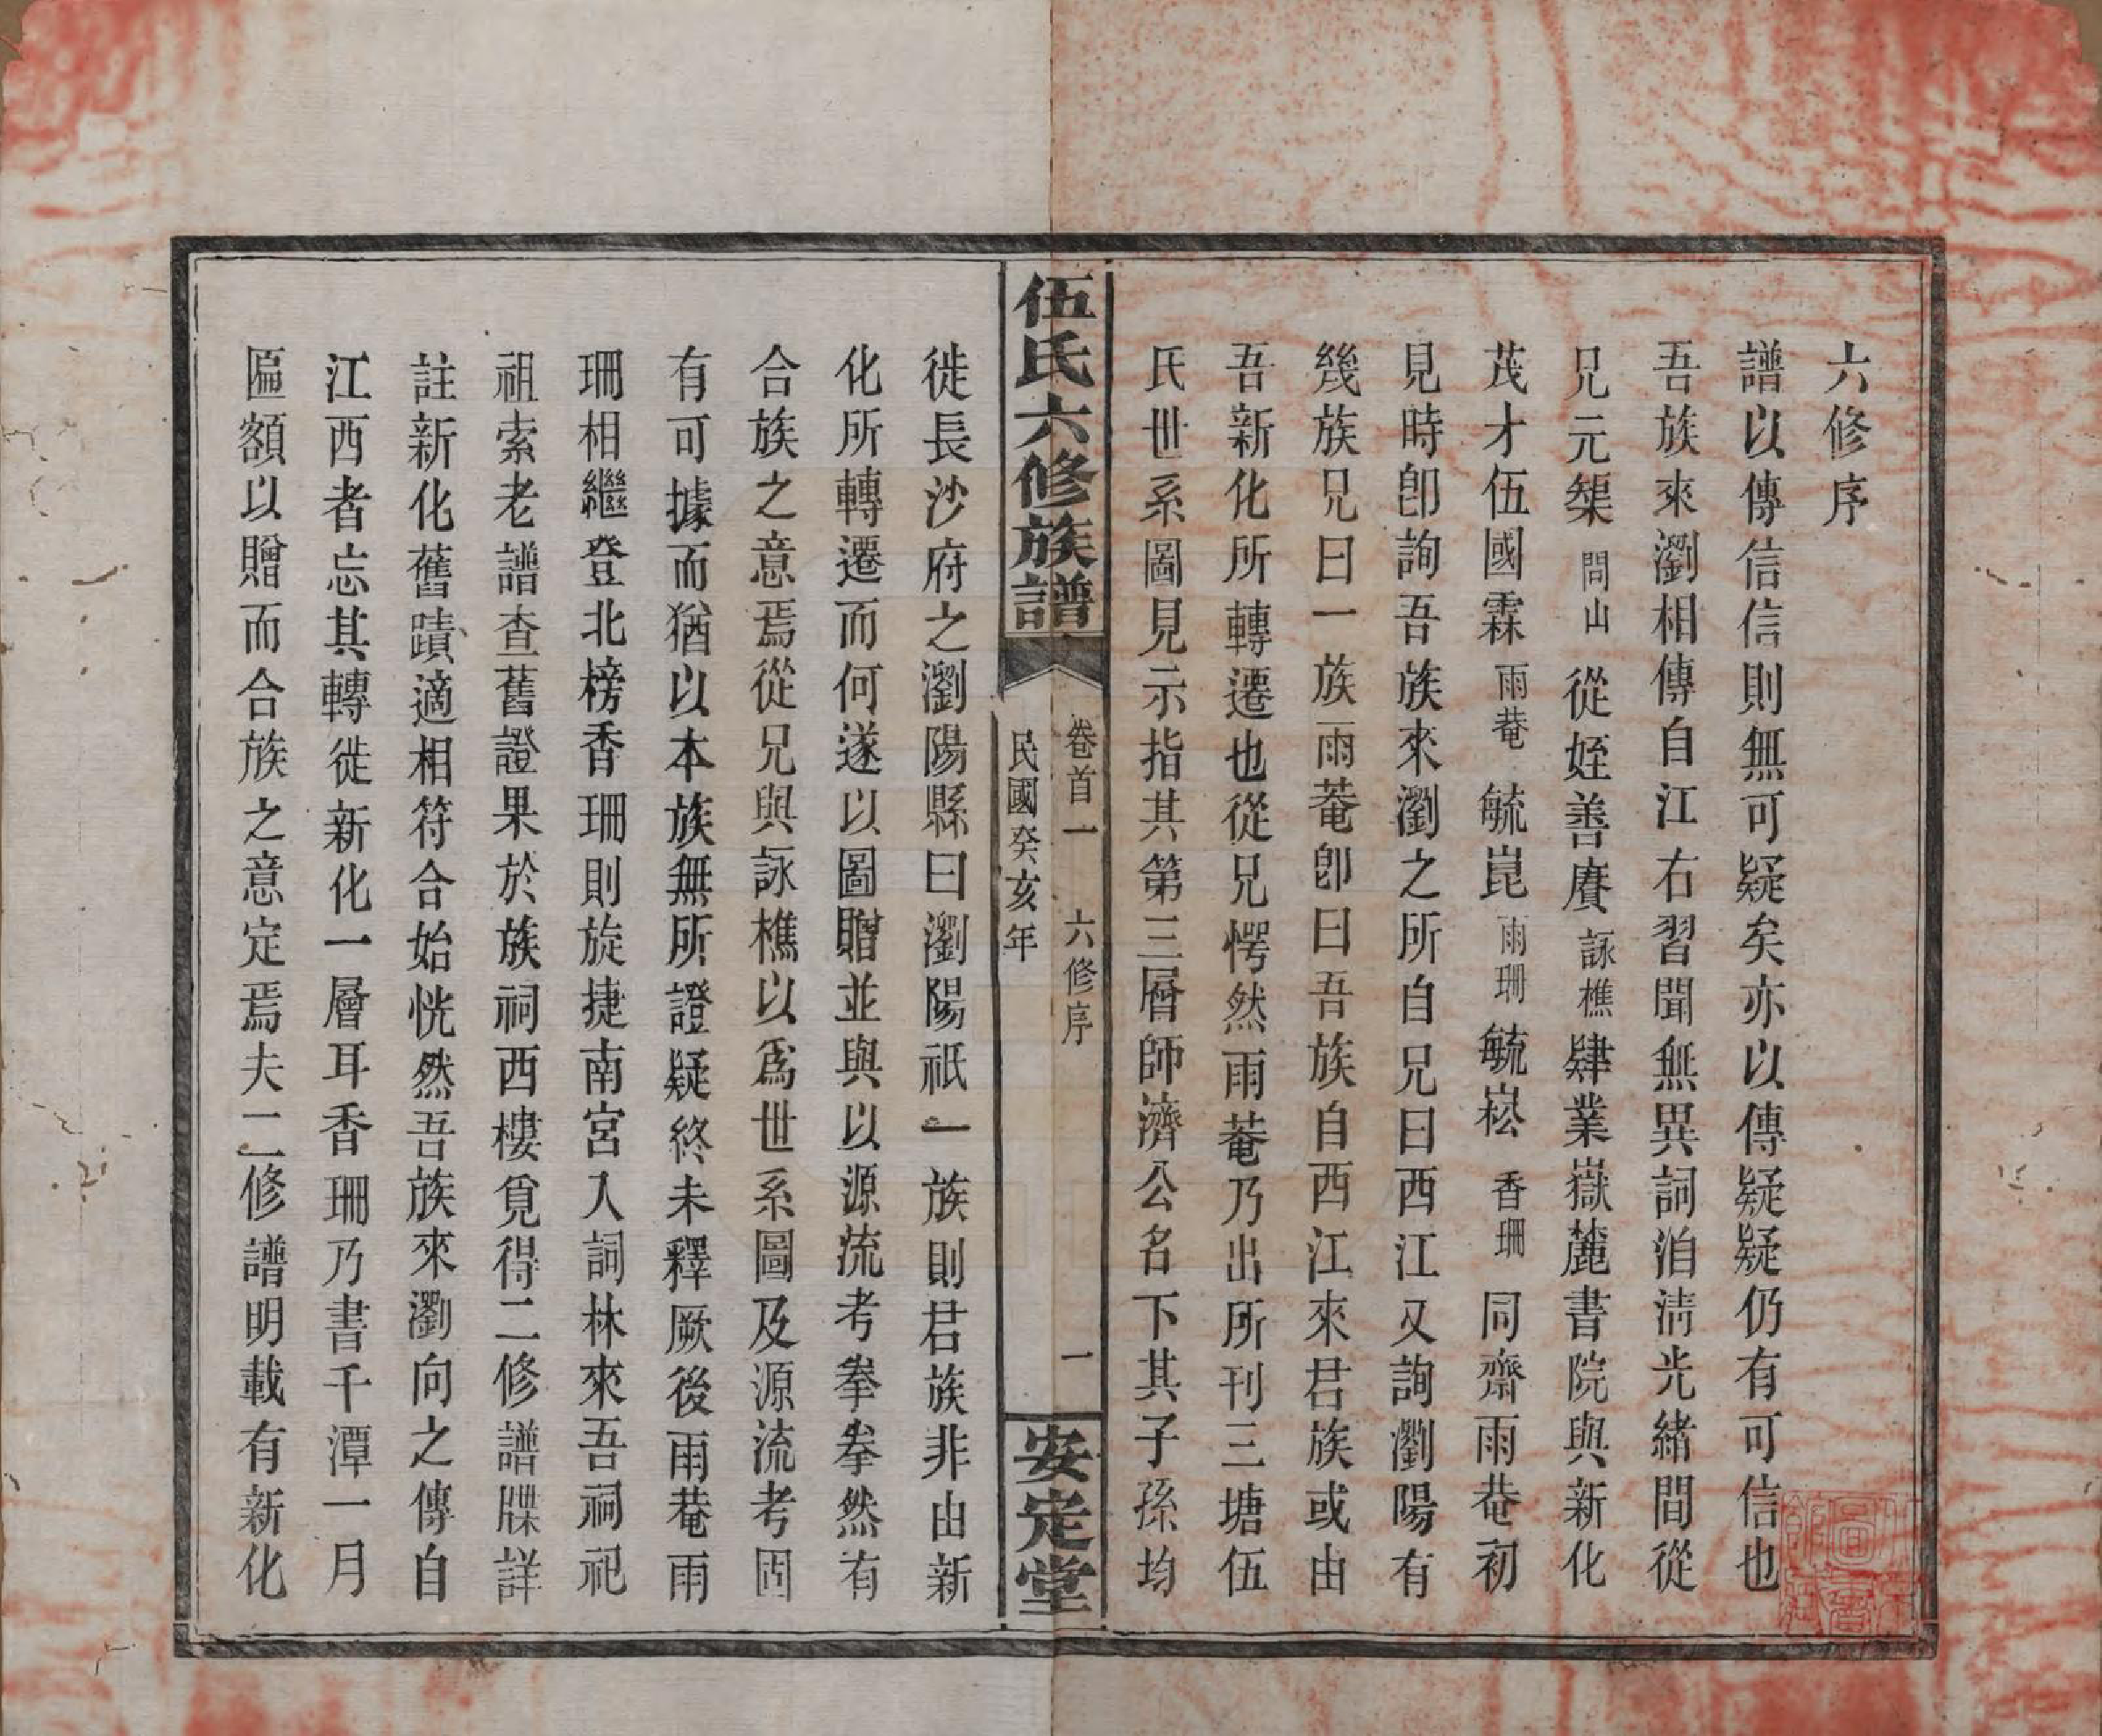 六修序
譜以傳信信則無可疑矣亦以傳疑疑仍有可信也
吾族來瀏相傳自江右習聞無異詞洎清光緒間從
兄元榘問山從姪善賡詠樵肄業嶽麓書院與新化
茂才伍國霖雨菴毓崑雨珊毓崧香珊同齋雨菴初
見時卽詢吾族來瀏之所自兄曰西江又詢瀏陽有
幾族兄曰一族雨菴卽曰吾族自西江來君族或由
吾新化所轉遷也從兄愕然雨菴乃出所刊三塘伍
氏世系圖見示指其第三層師濟公名下其子孫均
伍氏六修族譜
卷首一 六修序 一
民國癸亥年
安定堂
徙長沙府之瀏陽縣曰瀏陽祇一族則君族非由新
化所轉遷而何遂以圖贈並與以源流考拳拳然有
合族之意焉從兄與詠樵以爲世系圖及源流考固
有可據而猶以本族無所證疑終未釋厥後雨菴雨
珊相繼登北榜香珊則旋捷南宮入詞林來吾祠祀
祖索老譜查舊證果於族祠西樓覓得二修譜牒詳
註新化舊蹟適相符合始恍然吾族來瀏向之傳自
江西者忘其轉徙新化一層耳香珊乃書千潭一月
匾額以贈而合族之意定焉夫二修譜明載有新化